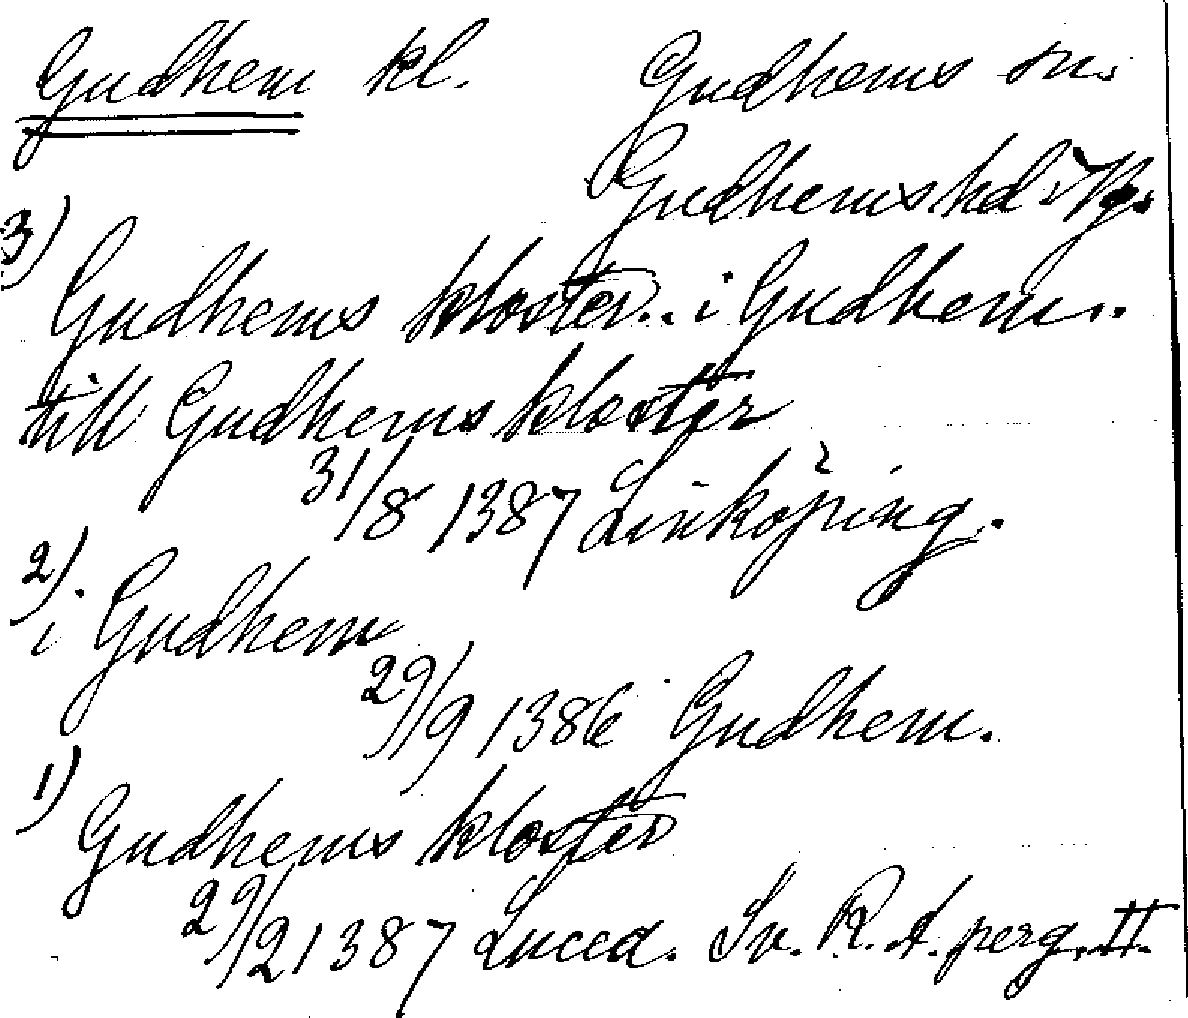 Gudhem kl. Gudhems sn.
Gudhems hd. Vg.
3)
Gudhems kloster.. i Gudhem..
till Gudhems kloster
31/8 1387 Linköping.
2)
i Gudhem
29/9 1386 Gudhem.
1)
Gudhems kloster
29/2 1387 Lucca. Sv. R. A. perg. II.